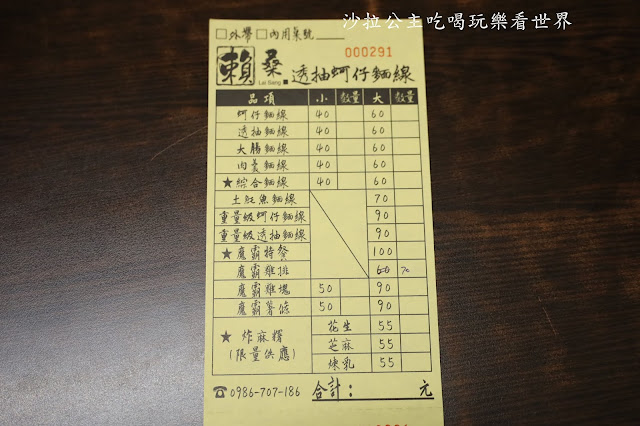 沙拉公主吃喝玩樂看世界
□外帶 □內用桌號
000291
賴桑 Lai Sang 透抽蚵仔麵線
品項 小 數量 大 數量
蚵仔麵線 40 60
透抽麵線 40 60
大腸麵線 40 60
肉羹麵線 40 60
★綜合麵線 40 60
土魠魚麵線 70
重量級蚵仔麵線 90
重量級透抽麵線 90
★魔霸特餐 100
魔霸雞排 60 70
魔霸雞塊 50 90
魔霸薯條 50 90
★炸麻糬 花生 55
(限量供應) 芝麻 55
煉乳 55
☎0986-707-186 合計: 元